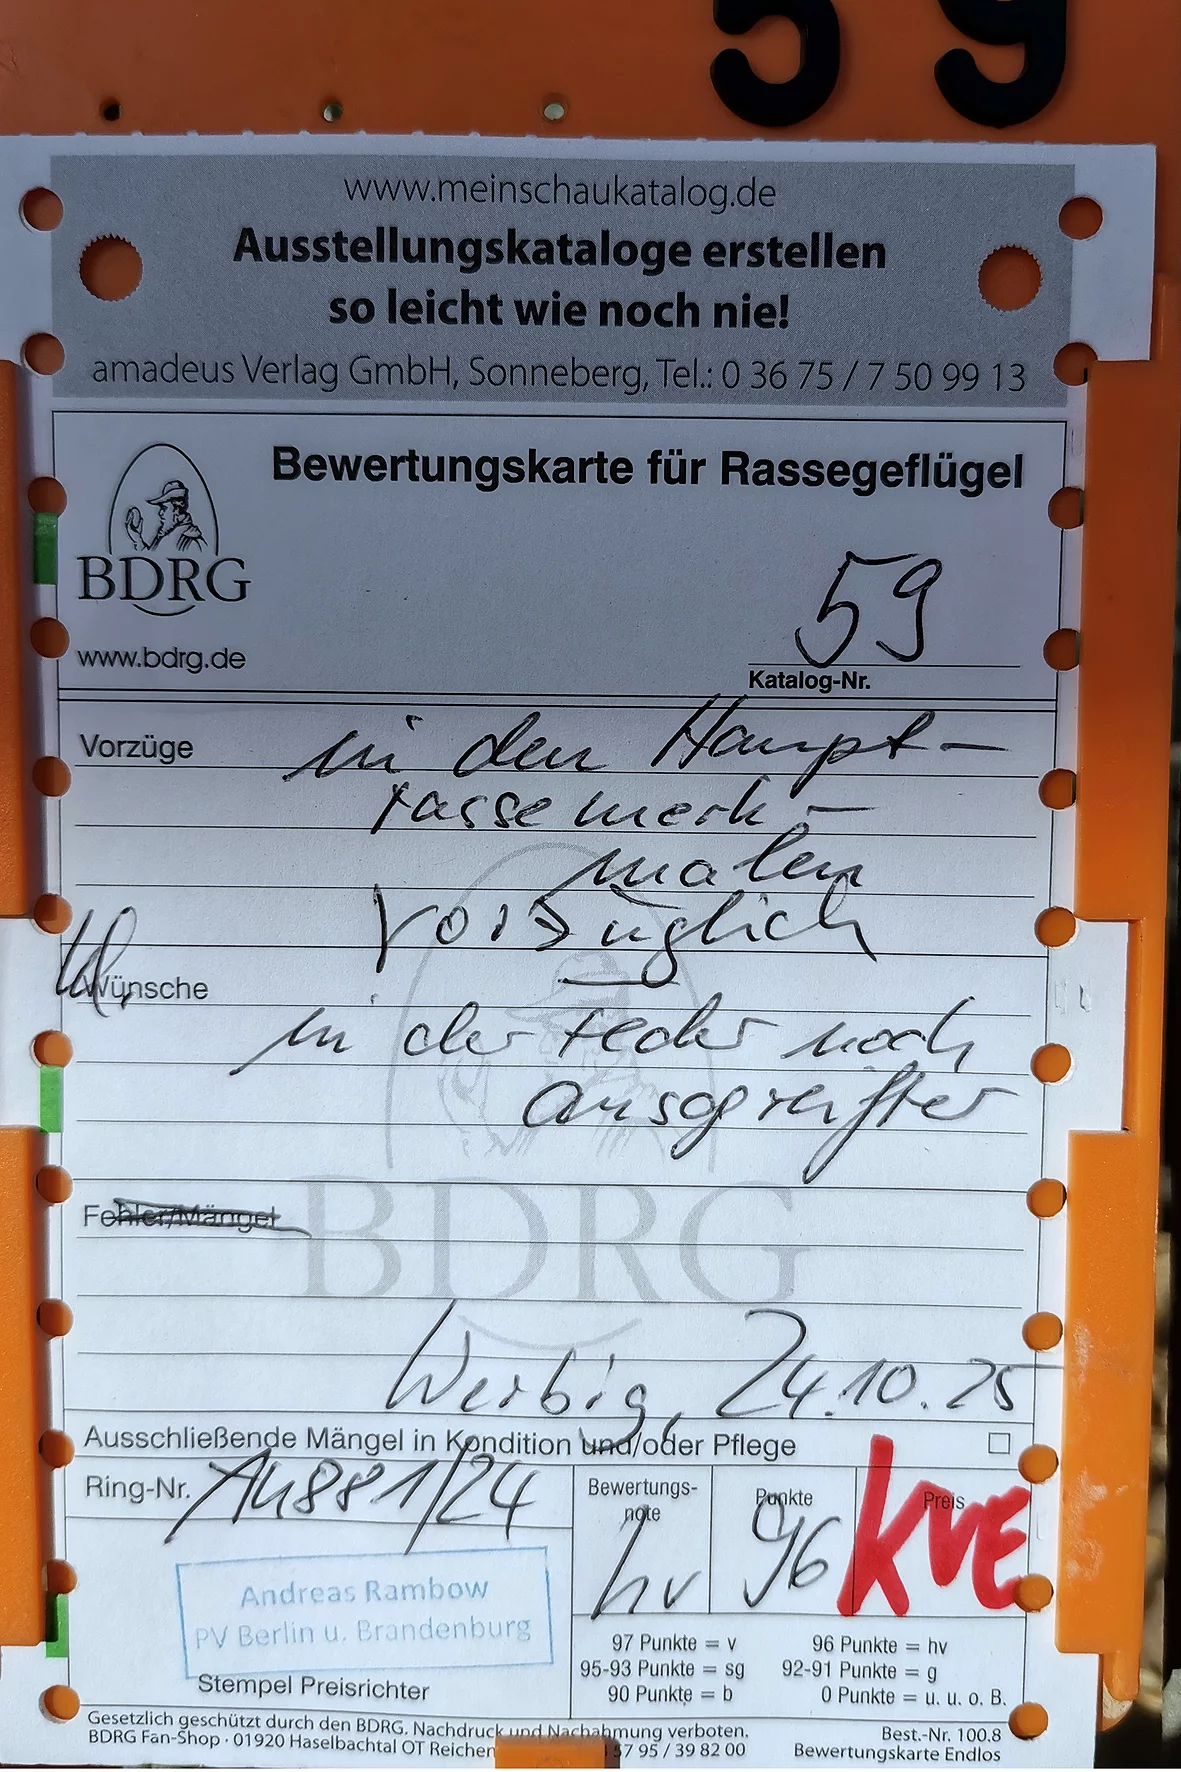 59
www.meinschaukatalog.de
Ausstellungskataloge erstellen
so leicht wie noch nie!
amadeus Verlag GmbH, Sonneberg, Tel.: 0 36 75 / 7 50 99 13
Bewertungskarte für Rassegeflügel
BDRG
www.bdrg.de
59
Katalog-Nr.
Vorzüge in den Haupt-
rassemerk-
malen
vorzüglich
Kl. Wünsche
in der Feder noch
ausgreifter
Fehler/Mängel
BDRG
Werbig, 24.10.25
Ausschließende Mängel in Kondition und/oder Pflege
Ring-Nr. AH881/24
Bewertungs-
note
hv
Punkte
96
Preis
KVE
Andreas Rambow
PV Berlin u. Brandenburg
Stempel Preisrichter
97 Punkte = v 96 Punkte = hv
95-93 Punkte = sg 92-91 Punkte = g
90 Punkte = b 0 Punkte = u. u. o. B.
Gesetzlich geschützt durch den BDRG. Nachdruck und Nachahmung verboten.
BDRG Fan-Shop · 01920 Haselbachtal OT Reichen 57 95 / 39 82 00
Best.-Nr. 100.8
Bewertungskarte Endlos